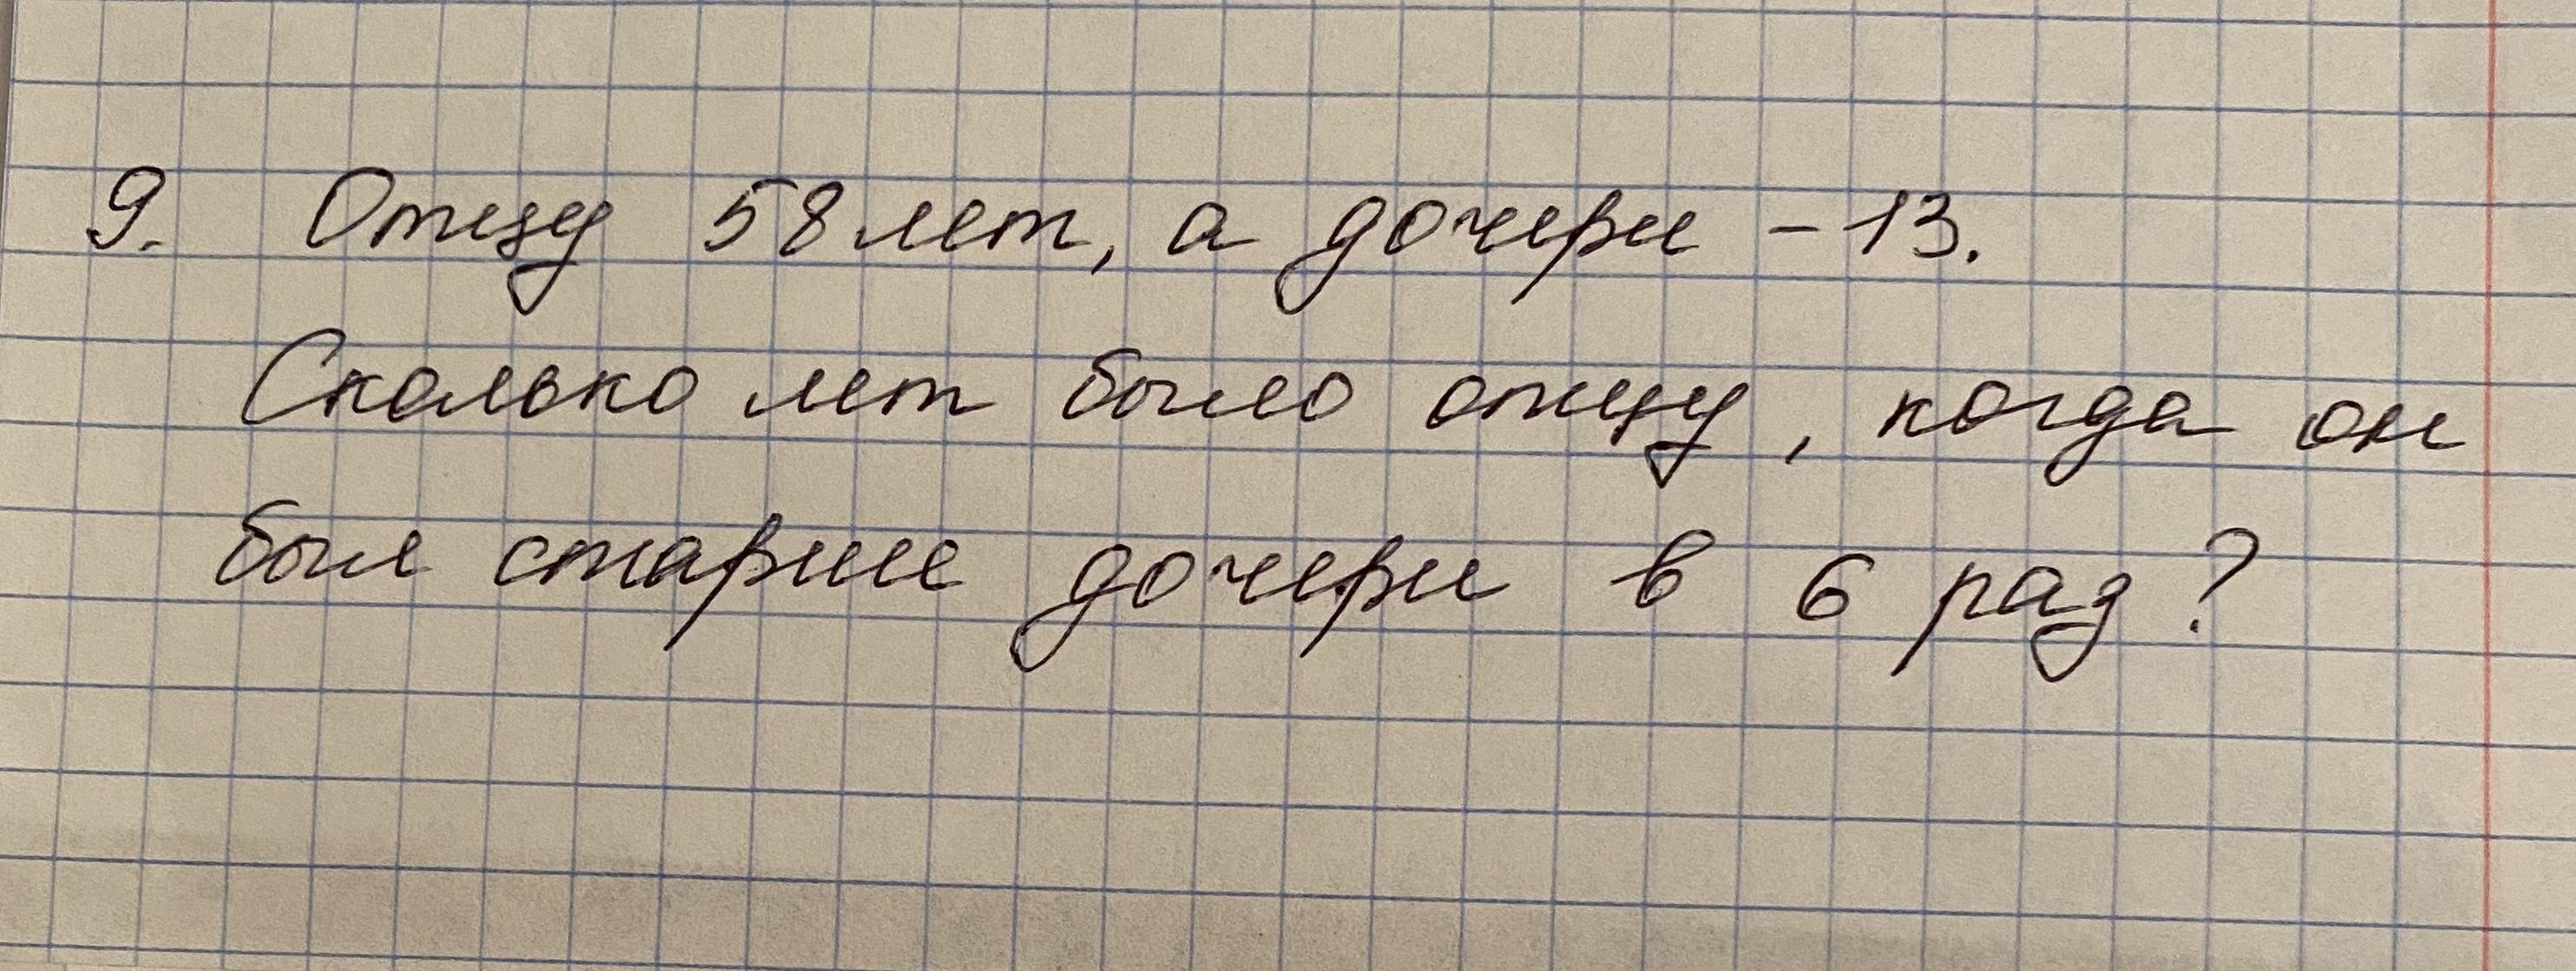 9. Отцу 58 лет, а дочери – 13.
Сколько лет было отцу, когда он
был старше дочери в 6 раз?